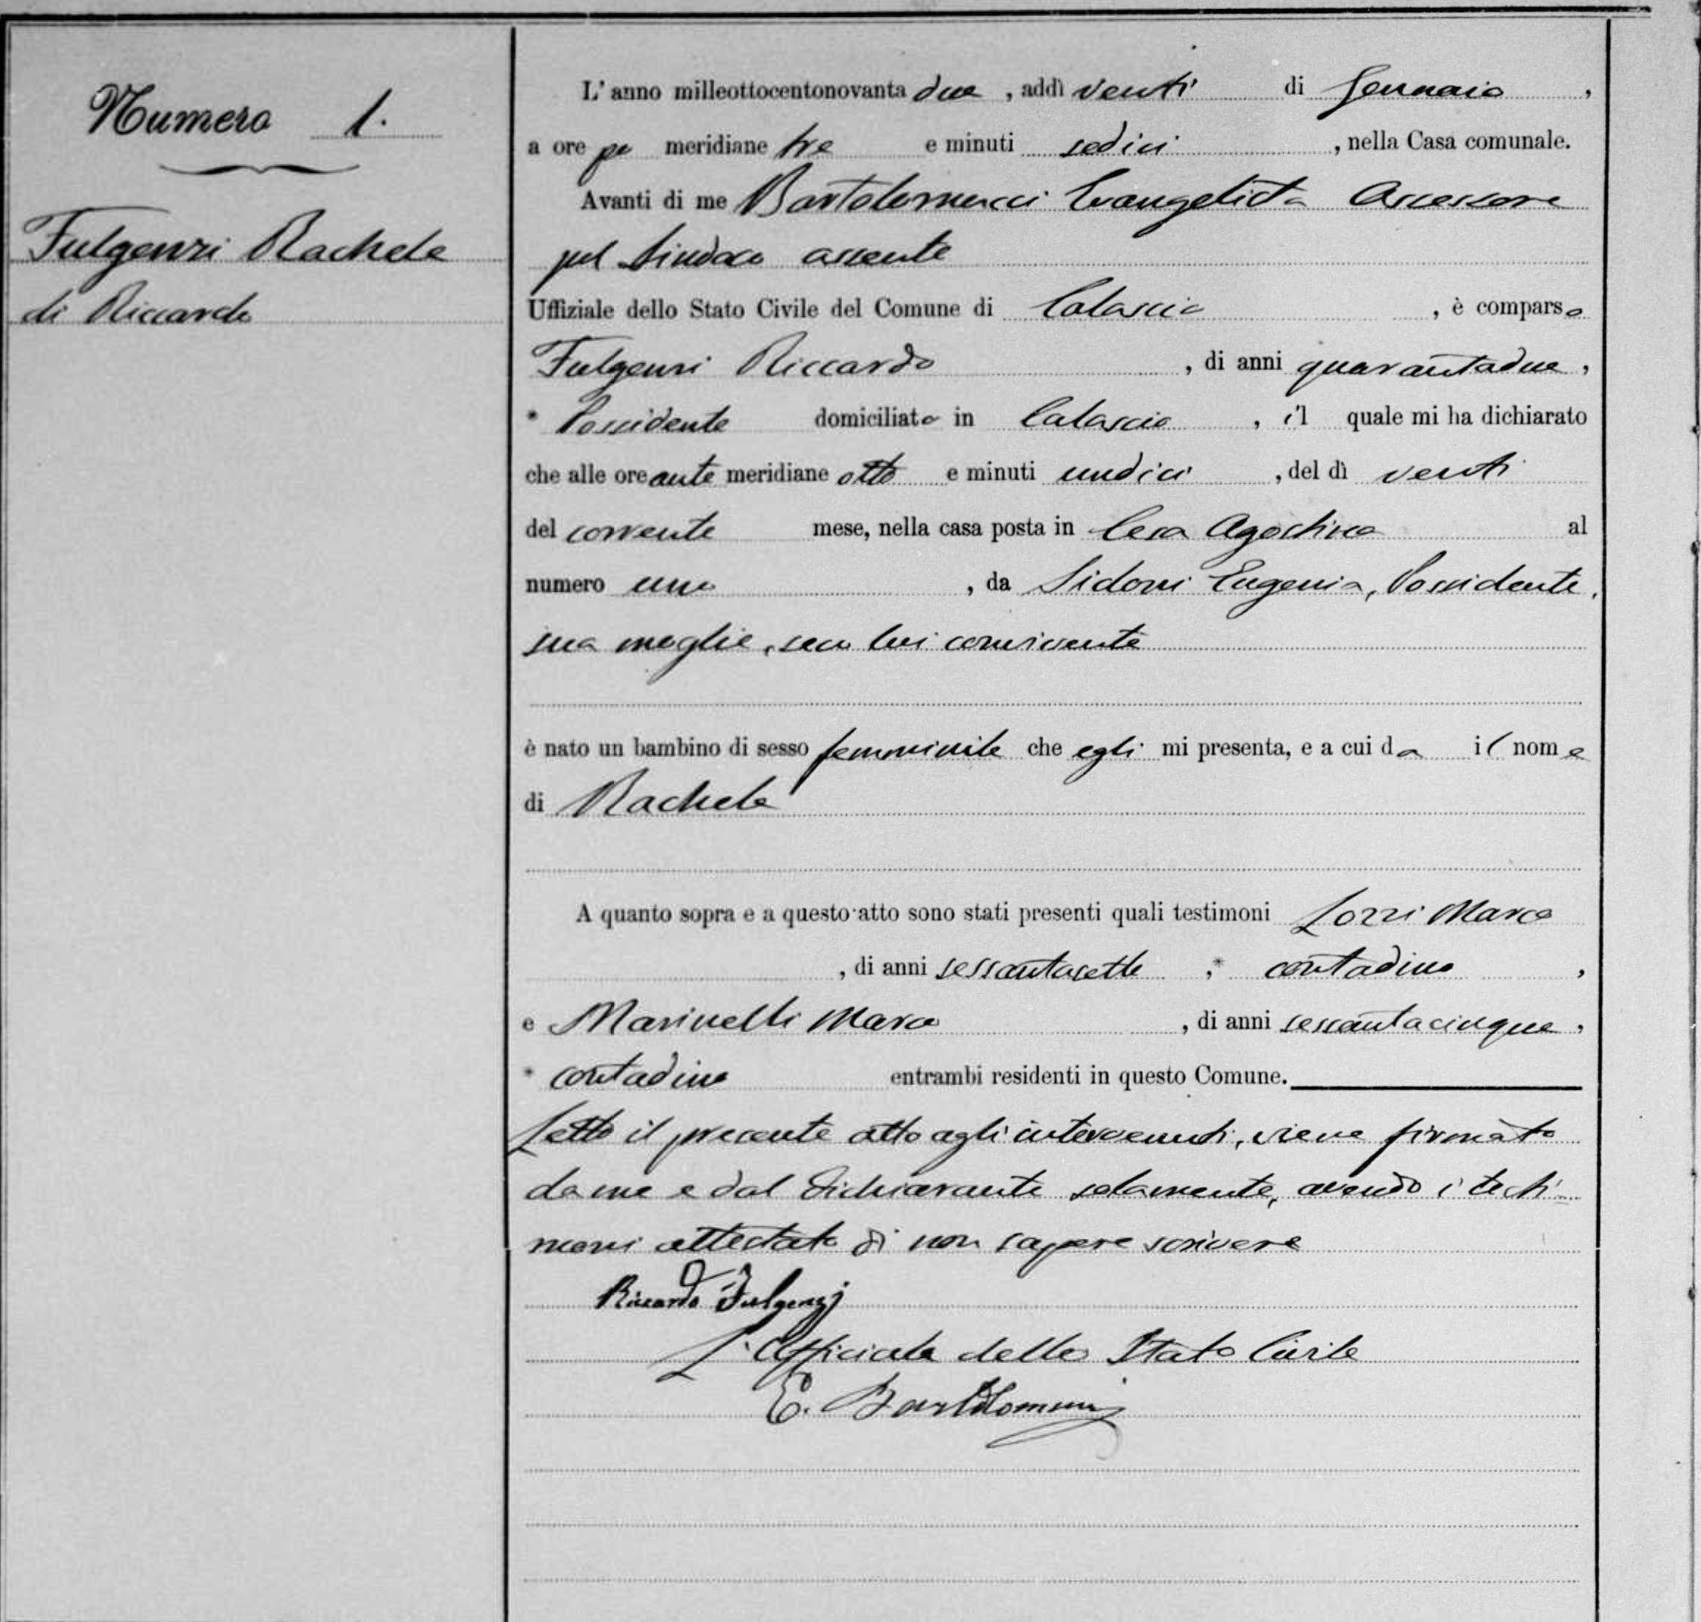 Numero 1.
Fulgenzi Rachele
di Riccardo
L'anno milleottocentonovanta due, addì venti di Gennaio,
a ore po meridiane tre e minuti sedici, nella Casa comunale.
Avanti di me Bartolomucci Evangelista Assessore
pel Sindaco assente
Uffiziale dello Stato Civile del Comune di Calascio, è comparso
Fulgenzi Riccardo, di anni quarantadue,
* Possidente domiciliato in Calascio, il quale mi ha dichiarato
che alle ore ante meridiane otto e minuti undici, del dì venti
del corrente mese, nella casa posta in Agostino al
numero uno, da Sidoni Eugenia, Possidente,
sua moglie, seco lui convivente
è nato un bambino di sesso femminile che egli mi presenta, e a cui da il nome
di Rachele
A quanto sopra e a questo atto sono stati presenti quali testimoni Lozzi Marco
, di anni sessantasette, * contadino,
e Marinelli Marco, di anni sessantacinque,
* contadino entrambi residenti in questo Comune.
Letto il presente atto agli intervenuti, viene firmato
da me e dal dichiarante solamente, avendo i testi-
moni attestato di non sapere scrivere
Riccardo Fulgenzj
L'Officiale dello Stato Civile
E. Bartolomucci